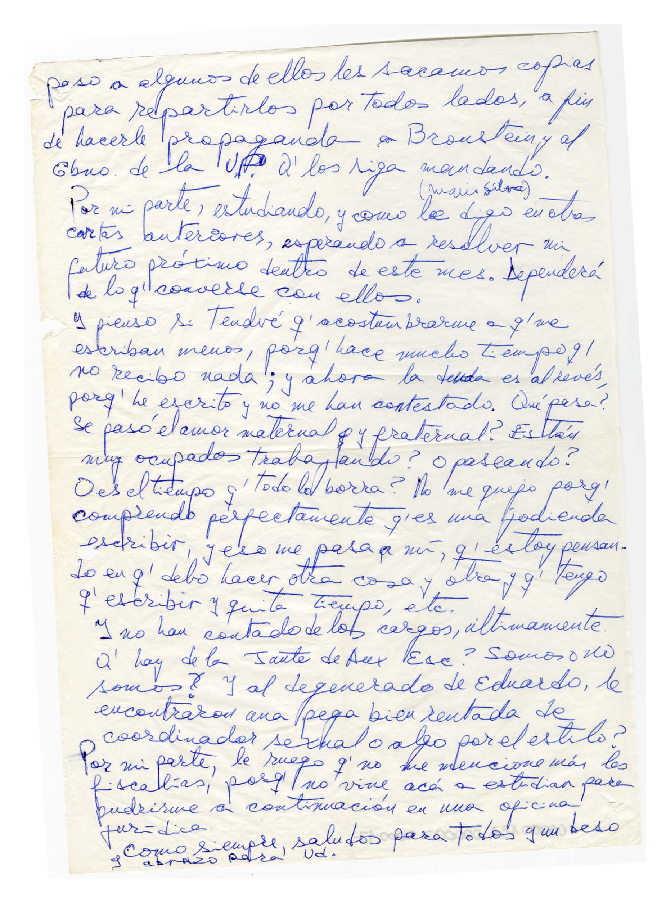 paso a algunos de ellos les sacamos copias
para repartirlos por todos lados, a fin
de hacerle propaganda a Bronstein y al
Gbno. de la UP. Q' los siga mandando.
(Mario Silva)
Por mi parte, estudiando, y como le digo en otras
cartas anteriores, esperando a resolver mi
futuro próximo dentro de este mes. Dependerá
de lo q' converse con ellos.
Y pienso si tendré q' acostumbrarme a q' me
escriban menos, porq' hace mucho tiempo q'
no recibo nada; y ahora la deuda es al revés,
porq' he escrito y no me han contestado. Qué pasa?
Se pasó el amor maternal y fraternal? Están
muy ocupados trabajando? O paseando?
O es el tiempo q' todo lo borra? No me quejo porq'
comprendo perfectamente q' es una jodienda
escribir, y eso me pasa a mí, q' estoy pensan-
do en q' debo hacer otra cosa y otra y q' tengo
q' escribir y quita tiempo, etc.
Y no han contado de los cargos, últimamente.
Q' hay de la Jante de Aux Esc? Somos o no
somos? Y al degenerado de Eduardo, le
encontraron una pega bien rentada de
coordinador sexual o algo por el estilo?
Por mi parte, le ruego q' no me mencione más las
fiscalías, porq' no vine acá a estudiar para
pudrirme a continuación en una oficina
jurídica.
Como siempre, saludos para todos y un beso
y abrazo para Ud.